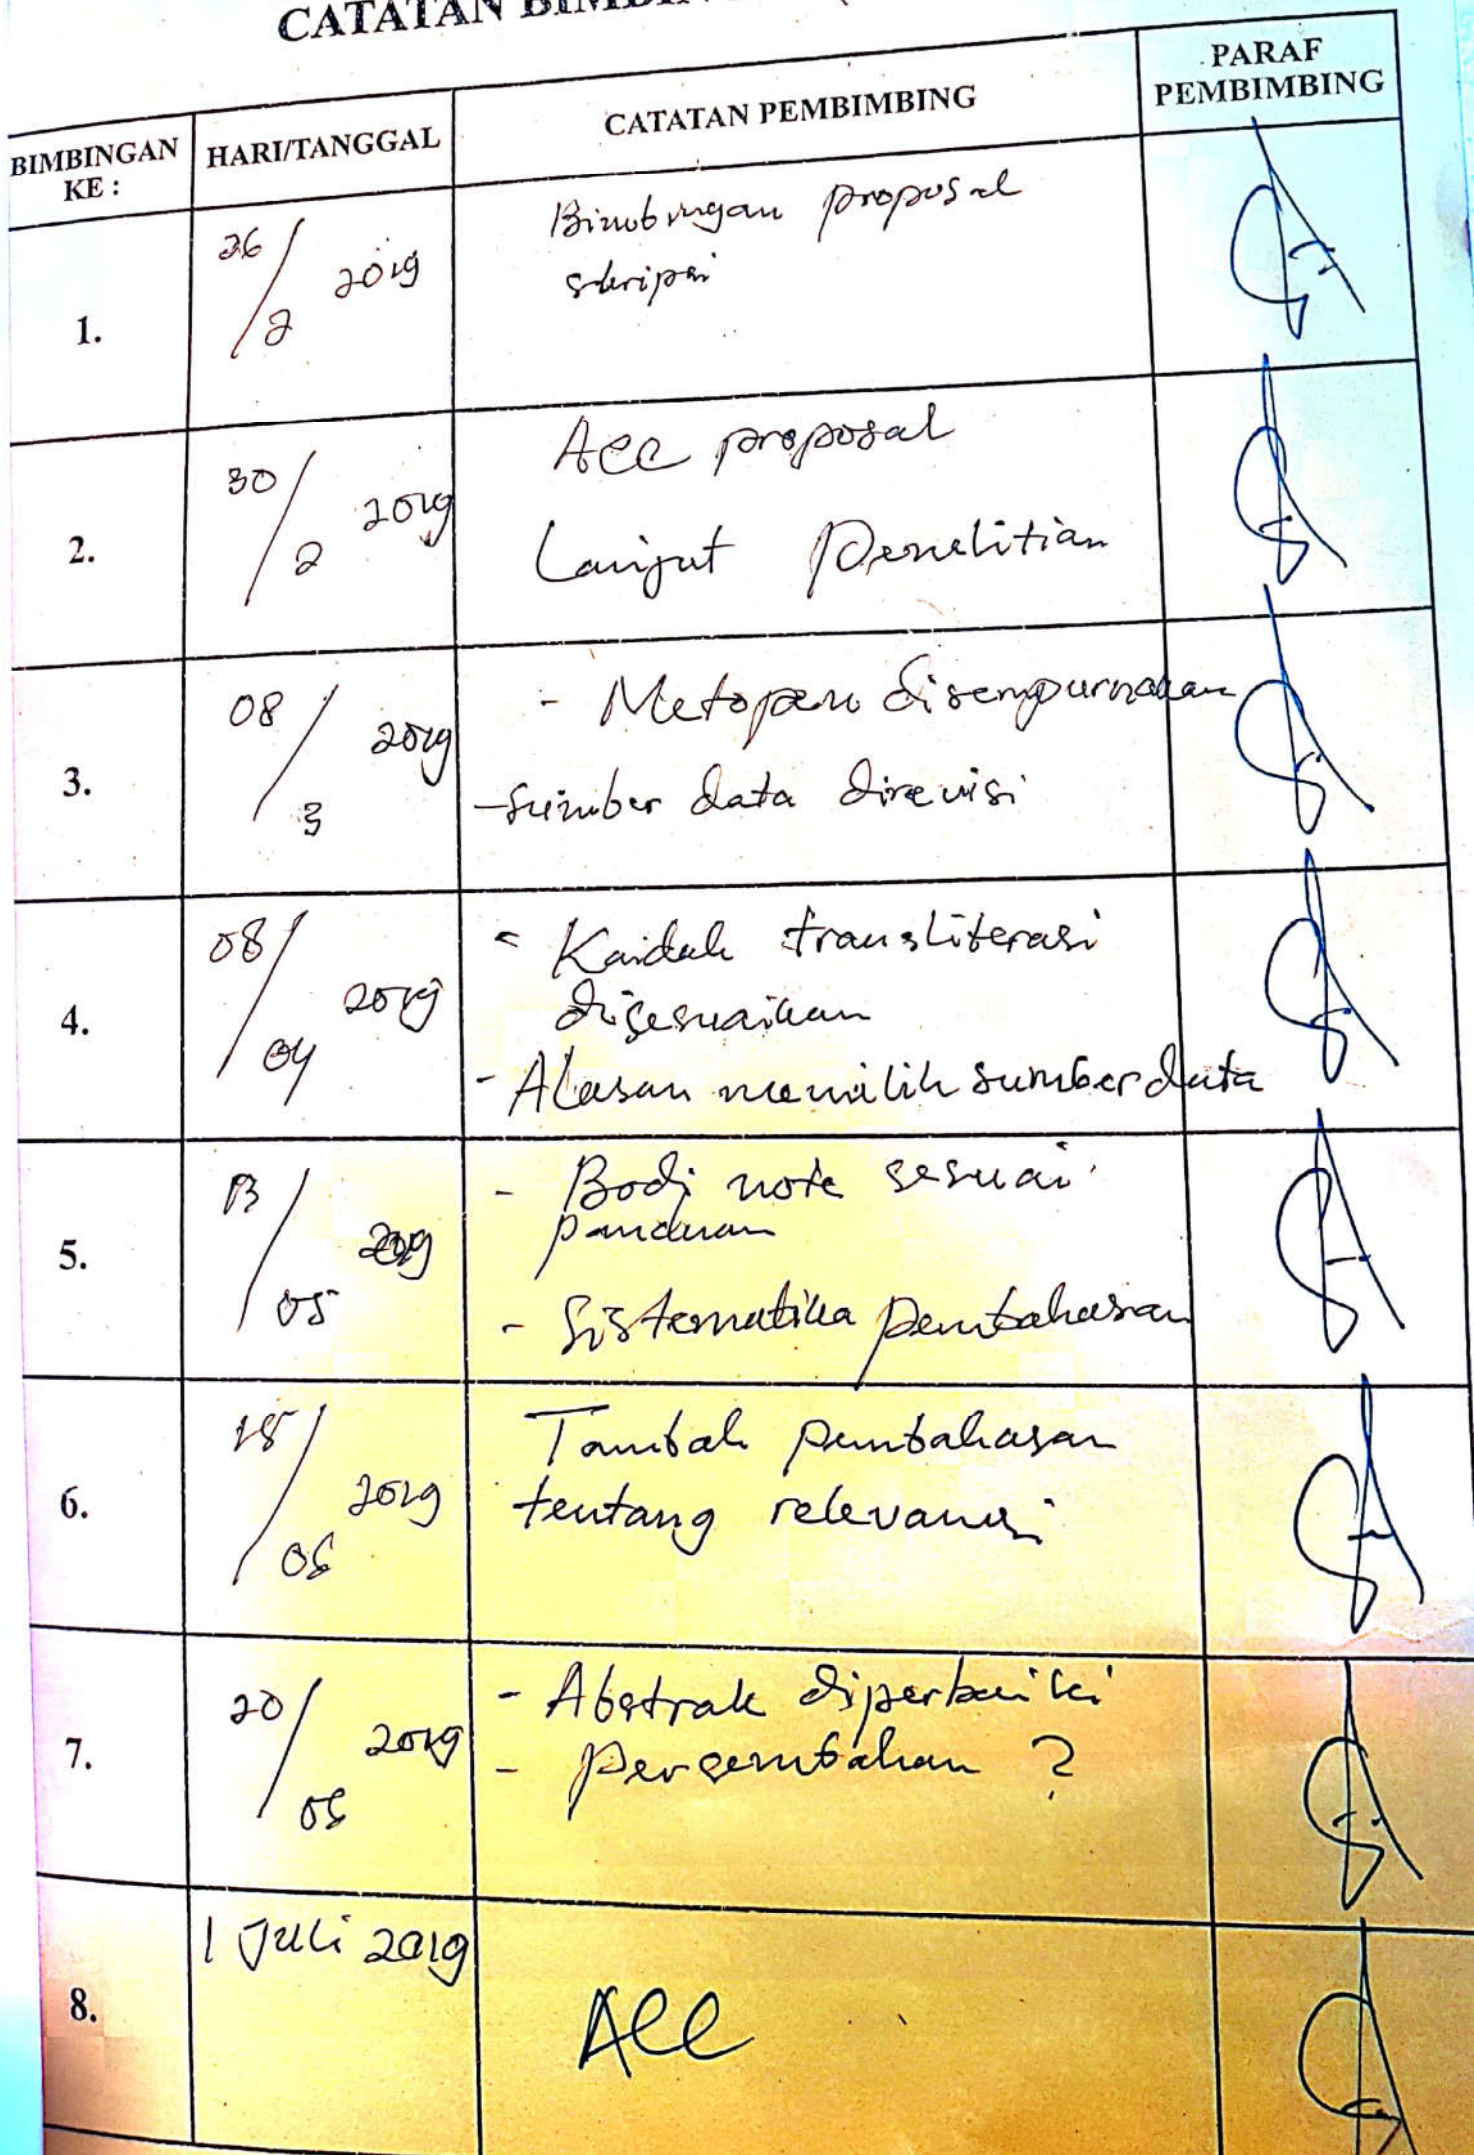 CATATAN
BIMBINGAN KE :
HARI/TANGGAL
CATATAN PEMBIMBING
PARAF PEMBIMBING
1.
26/2 2019
Bimbingan proposal
skripsi
2.
30/2 2019
Acc proposal
Lanjut Penelitian
3.
08/3 2019
- Metopen disempurnakan
- sumber data direvisi
4.
08/04 2019
- Kaidah transliterasi
disesuaikan
- Alasan memilih sumber data
5.
13/05 2019
- Bodi note sesuai
panduan
- Sistematika pembahasan
6.
18/06 2019
Tambah pembahasan
tentang relevansi
7.
20/06 2019
- Abstrak diperbaiki
- Persembahan ?
8.
1 Juli 2019
Acc